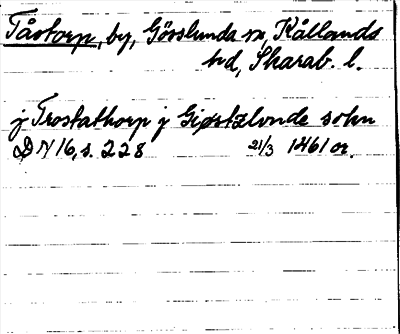 Tåstorp, by, Gösslunda sn, Kållands
hd, Skarab. l.
j Trostathorp j Giøstzlvnde sokn
DN 16, s. 228 21/3 1461 or.